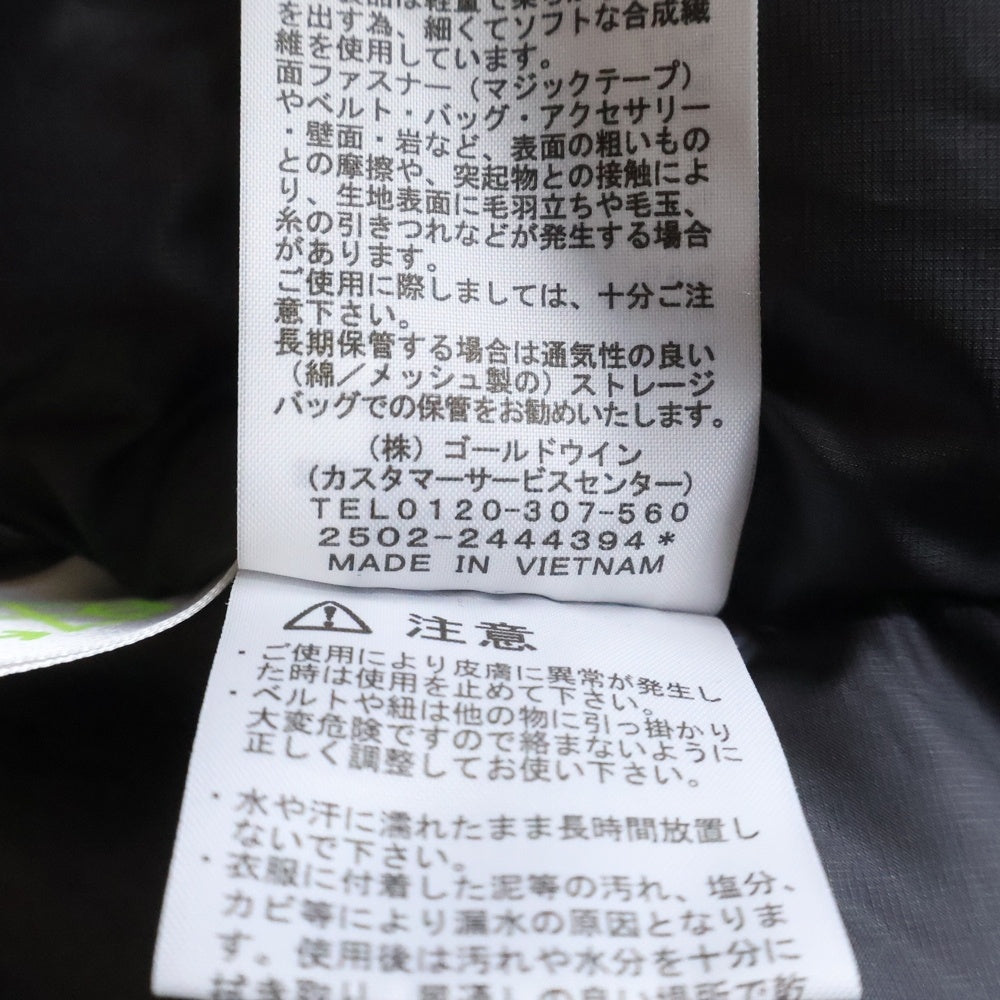 を表す為、細くてソフトな合成繊
維を使用しています。
面ファスナー(マジックテープ)
やベルト・バッグ・アクセサリー
・壁面・岩など、表面の粗いもの
との摩擦や、突起物との接触によ
り、生地表面に毛羽立ちや毛玉、
糸の引きつれなどが発生する場合
があります。
ご使用に際しましては、十分ご注
意下さい。
長期保管する場合は通気性の良い
(綿/メッシュ製の)ストレージ
バッグでの保管をお勧めいたします。
(株)ゴールドウイン
(カスタマーサービスセンター)
TEL0120-307-560
2502-2444394*
MADE IN VIETNAM
注意
・ご使用により皮膚に異常が発生し
た時は使用を止めて下さい。
・ベルトや紐は他の物に引っ掛かり
大変危険ですので絡まないように
正しく調整してお使い下さい。
・水や汗に濡れたまま長時間放置し
ないで下さい。
・衣服に付着した泥等の汚れ、塩分、
カビ等により漏水の原因となりま
す。使用後は汚れや水分を十分に
拭き取り、風通しの良い場所で乾